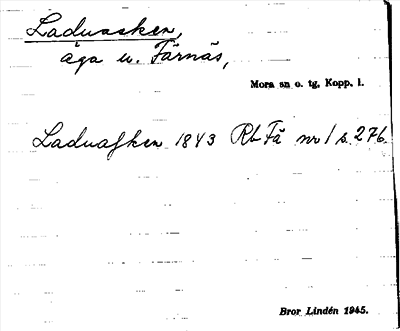 Laduasken,
äga u. Färnäs,
Mora sn o. tg, Kopp. l.
Laduasken 1843 Rb Fä nr 1 s. 276
Bror Lindén 1945.